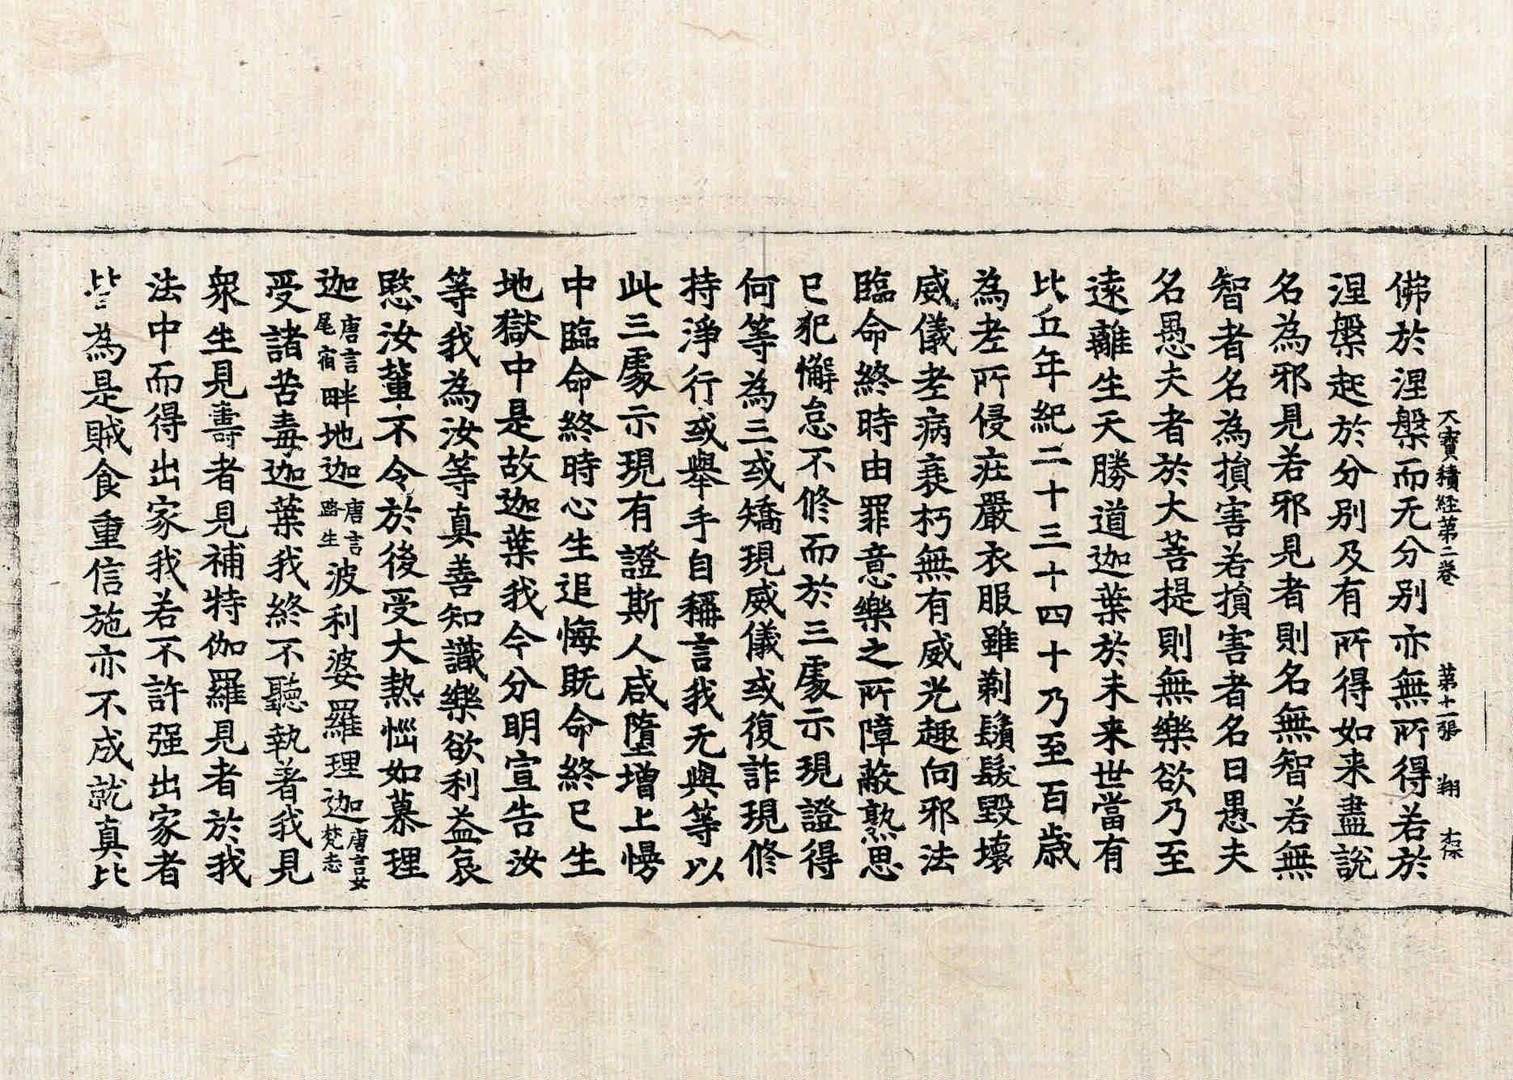 大寶積經第二卷 第十一張 翔
佛於涅槃而无分別亦無所得若於
涅槃起於分別及有所得如来盡說
名為邪見若邪見者則名無智若無
智者名為損害若損害者名曰愚夫
名愚夫者於大菩提則無樂欲乃至
遠離生天勝道迦葉於未来世當有
比丘年紀二十三十四十乃至百歳
為老所侵在嚴衣服雖剃鬚髮毀壞
威儀老病衰朽無有威光趣向邪法
臨命終時由罪意樂之所障蔽熟思
已犯懈怠不修而於三處示現證得
何等為三或矯現威儀或復詐現修
持淨行或舉手自稱言我无與等以
此三處示現有證斯人咸墮增上慢
中臨命終時心生追悔既命終已生
地獄中是故迦葉我今分明宣告汝
等我為汝等真善知識樂欲利益哀
愍汝輩不令於後受大熱惱如慕理
迦唐言尾宿畔地迦唐言盛生波利婆羅理迦唐言女梵志
受諸苦毒迦葉我終不聽執著我見
衆生見壽者見補特伽羅見者於我
法中而得出家我若不許强出家者
皆為是賊食重信施亦不成就真比